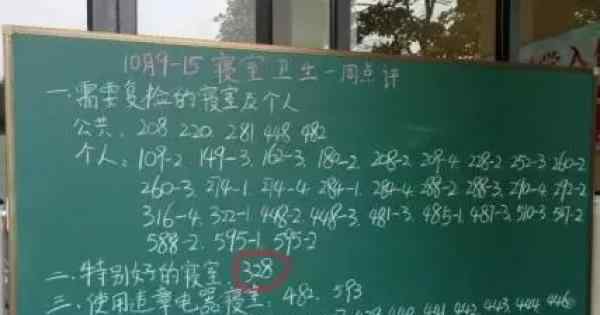 10月9-15寝室卫生一周点评
一.需要复检的寝室及个人
公共:208 220. 281 448 482
个人:109-2. 149-3. 162-3. 180-2. 208-2. 209-4. 228-2. 252-3. 260-2
260-3. 274-1. 274-4. 284-1. 284-4. 288-2. 288-3. 290-4. 292-2
316-4. 322-1. 448-2. 448-3. 481-3. 485-1. 487-3. 510-3. 517-2
588-2. 595-1. 595-2
二.特别好的寝室:328
三.使用违章电器寝室:482. 593
439. 440. 441. 442. 443. 444. 446